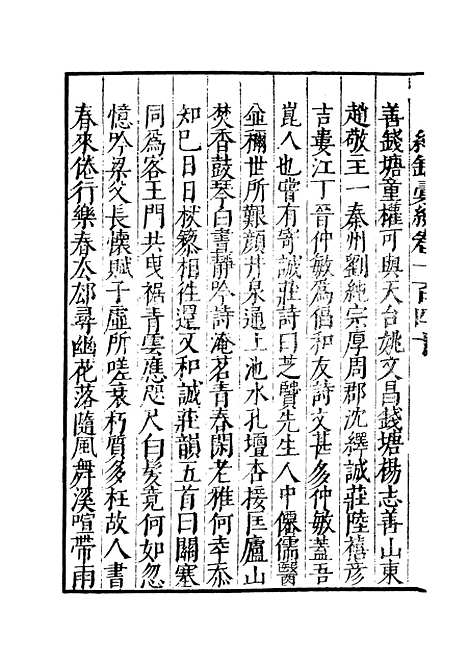 紀錄彙編卷一百四
善錢塘童權可與天台姚文昌錢塘楊志善山東
趙敬主一秦州劉純宗厚周郡沈繹誠莊陸禧彦
吉婁江丁晉仲敏爲倡和友詩文甚多仲敏蓋吾
崑人也嘗有寄誠莊詩曰芝賢先生人中僊儒醫
並稱世所艱顔井泉通上池水孔壇杏接匡廬山
焚香鼓琴白晝靜吟詩淹茗青春閑老雅何幸忝
知巳日日杖藜相徃還又和誠莊韻五首曰關塞
同爲客王門共曳裾青雲應咫尺白髮竟何如忽
憶吟梁父長懷賦子虛所嗟衰朽質多枉故人書
春來倦行樂春厺郄尋幽花落隨風舞溪喧帶雨